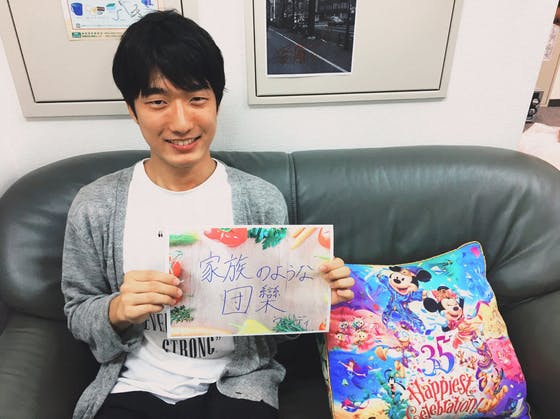 家族のような
団欒
"
EVE
STRONG"
35
Happiest
Celebration!